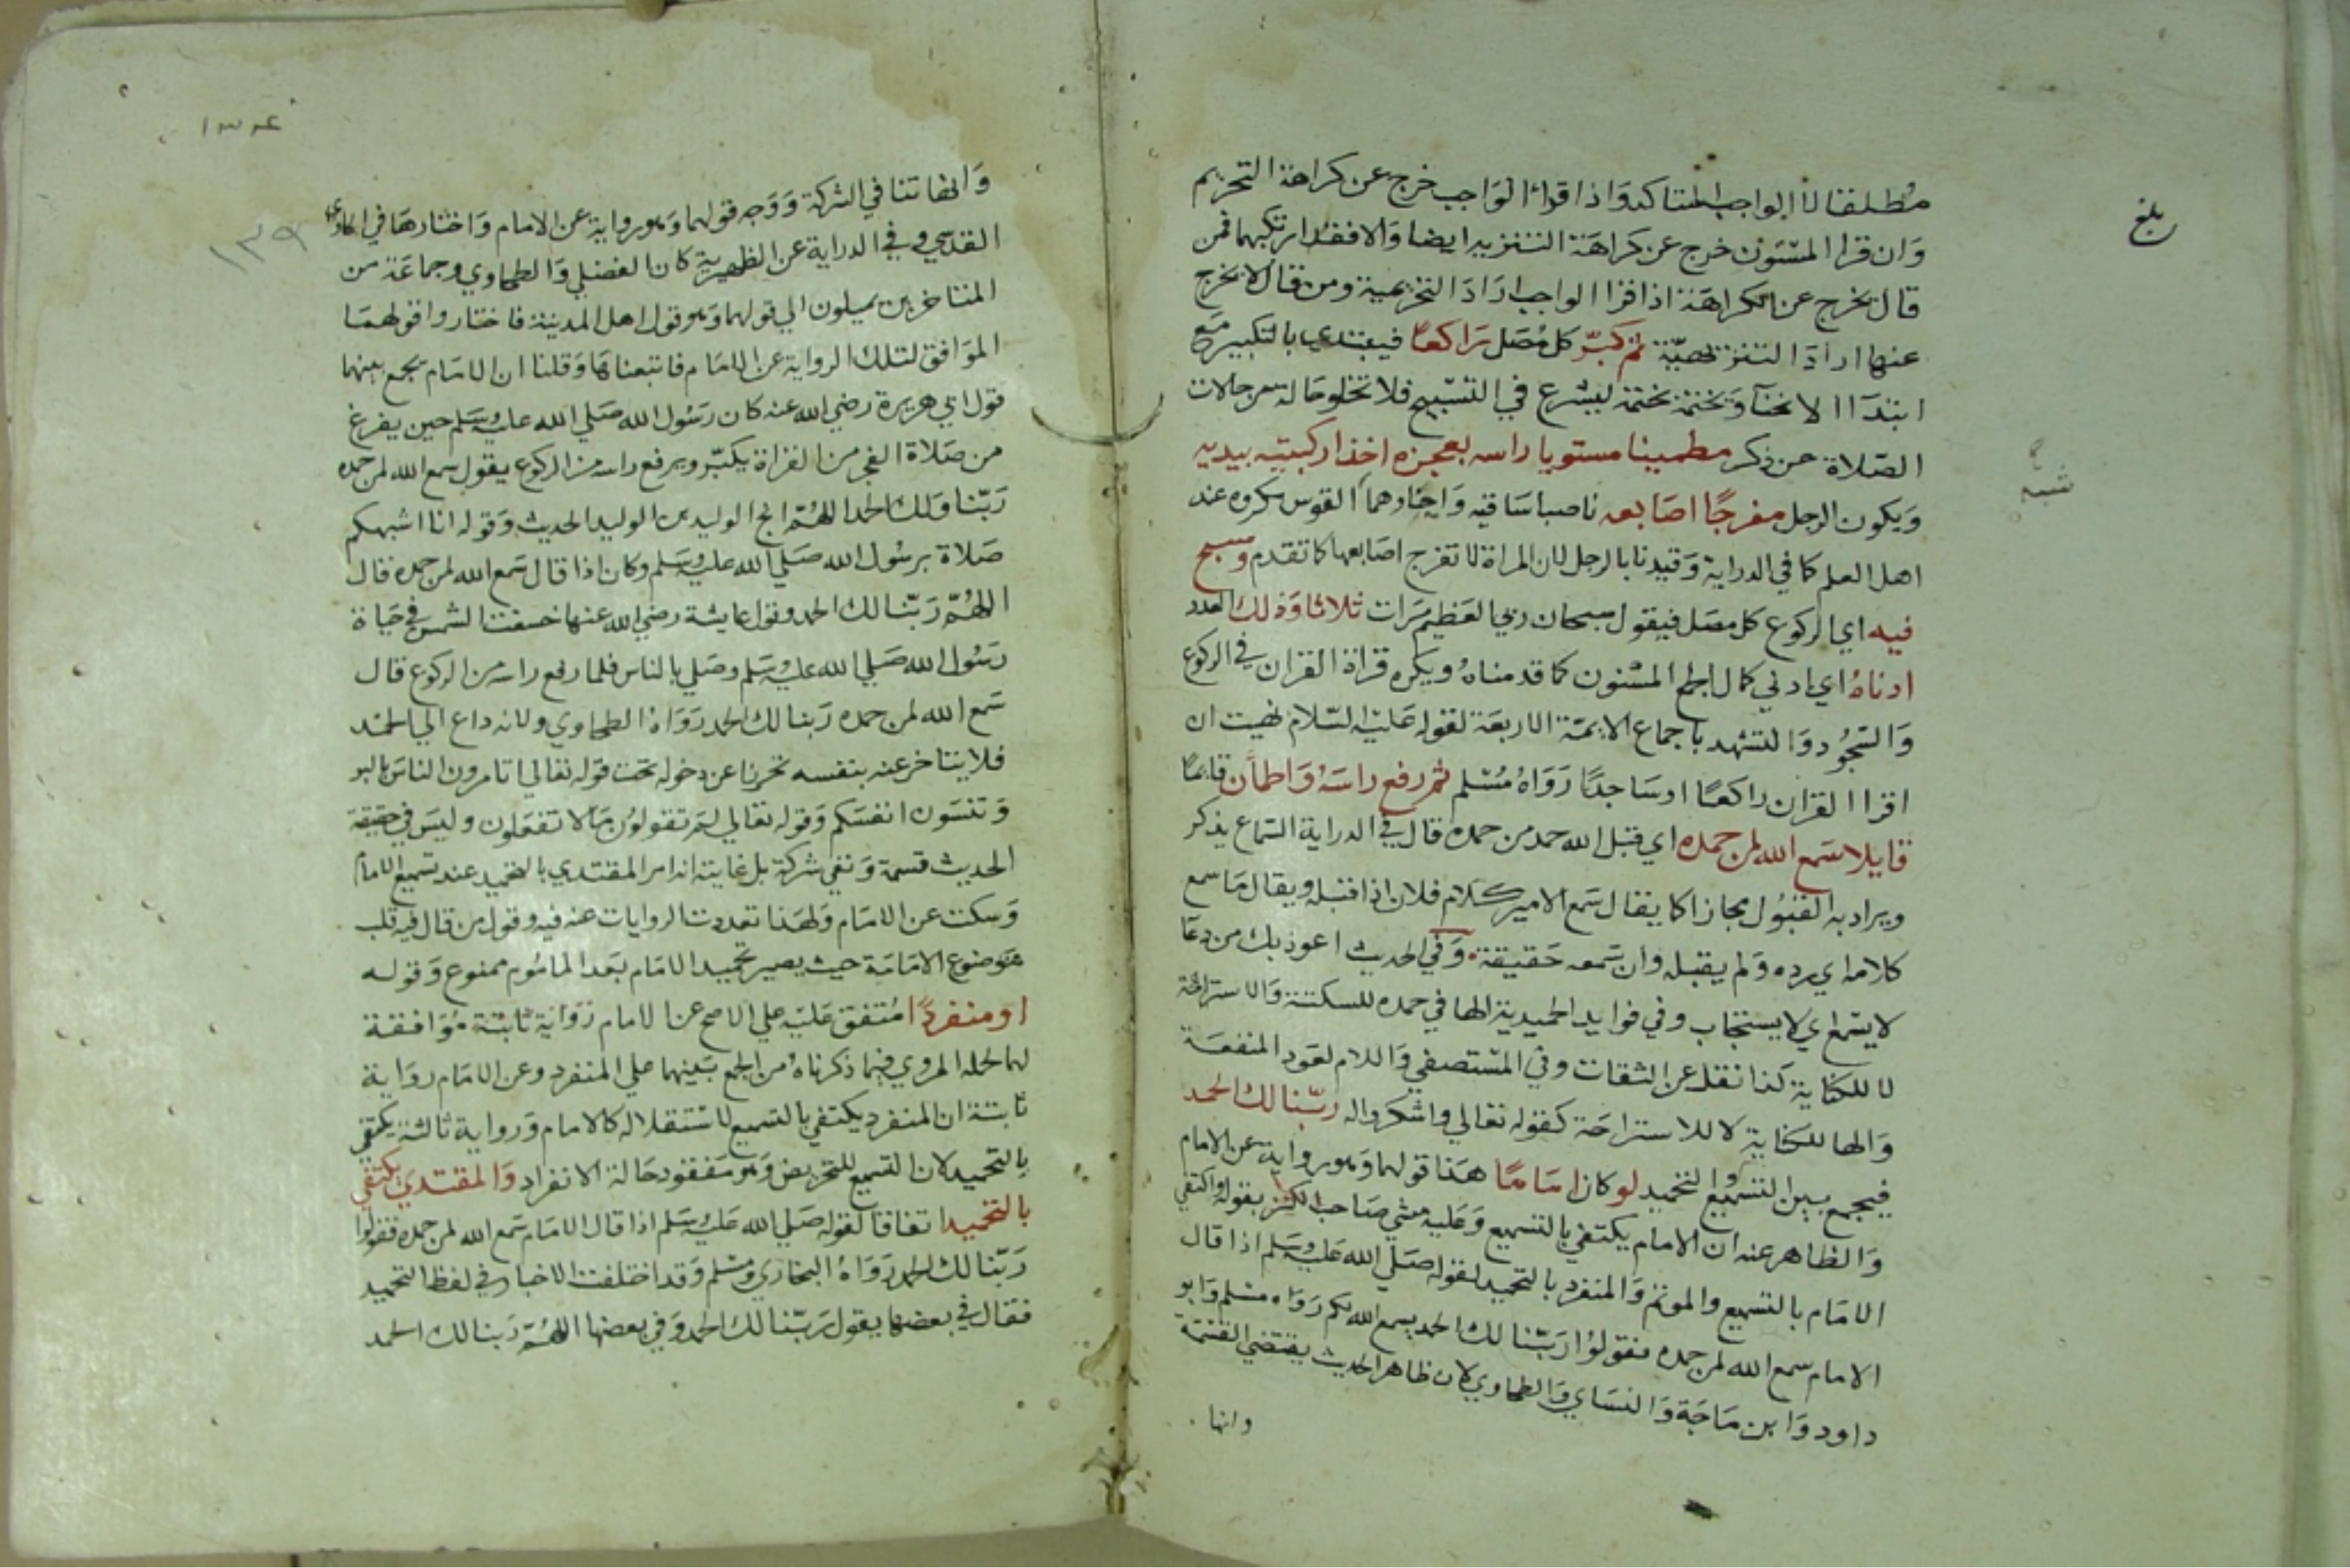 بلغ
مطلقا لان الواجب المتاكد واذا قرا الواجب خرج عن كراهة التحريم
وان قرا المسنون خرج عن كراهة التنزيه ايضا والا فقد ارتكبهما فمن
قال يخرج عن الكراهة اذا قرا الواجب اراد التحريمية ومن قال لا يخرج
عنها اراد التنزيهية ثم كبر كل مصل راكعا فيبتدي بالتكبير مع
ابتدآ الانحنآ ويختمه بختمه ليشرع في التسبيح فلا تخلو حالة من حالات
الصلاة عن ذكر مطمينا مستويا راسه بعجزه اخذا ركبتيه بيديه
ويكون الرجل مفرجا اصابعه ناصبا ساقيه واحناوهما القوس مكروه عند
اهل العلم كما في الدراية وقيدنا بالرجل لان المراة لا تفرج اصابعها كما تقدم وسبح
فيه اي الركوع كل مصل فيقول سبحان ربي العظيم مرات ثلاثا وذلك العدد
ادناه اي ادني كمال الجمع المسنون كما قدمناه ويكره قراة القران في الركوع
والسجود والتشهد باجماع الايمة الاربعة لقوله عليه السلام نهيت ان
اقرا القران راكعا او ساجدا رواه مسلم ثم رفع راسه واطمأن قايما
قايلا سمع الله لمن حمده اي قبل الله حمد من حمده قال في الدراية السماع يذكر
ويراد به القبول مجازا كما يقال سمع الامير كلام فلان اذا قبله ويقال ما سمع
كلامه اي رده ولم يقبله وان سمعه حقيقة وفي الحديث اعوذ بك من دعآ
لا يسمع اي لا يستجاب وفي فوايد الحميدية الها في حمده للسكتة والاستراحة
لا للكناية كذا نقل عن الثقات وفي المستصفي واللام لعود المنفعة
والها للكناية لا للاستراحة كقوله تعالي واشكروا له ربنا لك الحمد
فيجمع بين التسميع والتحميد لو كان اماما هذا قولهما وهو رواية عن الامام
والظاهر عنه ان الامام يكتفي بالتسميع وعليه مشي صاحب الكنز بقوله واكتفي
الامام بالتسميع والموتم والمنفرد بالتحميد لقوله صلي الله عليه وسلم اذا قال
الامام سمع الله لمن حمده فقولوا ربنا لك الحمد يسمع الله لكم رواه مسلم وابو
داود وابن ماجة والنساي والطحاوي لان ظاهر الحديث يقتضي القسمة
وانها
١٣٩
وانها تنافي الشركة ووجه قولهما وهو رواية عن الامام واختارها في الحاوي
القدسي وفي الدراية عن الظهيرية كان الفضلي والطحاوي وجماعة من
المتاخرين يميلون الي قولهما وهو قول اهل المدينة فاختاروا قولهما
الموافق لتلك الرواية عن الامام فاتبعناها وقلنا ان الامام يجمع بينهما
قول ابي هريرة رضي الله عنه كان رسول الله صلي الله عليه وسلم حين يفرغ
من صلاة الفجر من القراة يكبر ويرفع راسه من الركوع يقول سمع الله لمن حمده
ربنا ولك الحمد اللهم انج الوليد بن الوليد الحديث وقوله انا اشبهكم
صلاة برسول الله صلي الله عليه وسلم وكان اذا قال سمع الله لمن حمده قال
اللهم ربنا لك الحمد وقول عايشة رضي الله عنها خسفت الشمس في حياة
رسول الله صلي الله عليه وسلم وصلي بالناس فلما رفع راسه من الركوع قال
سمع الله لمن حمده ربنا لك الحمد رواه الطحاوي ولانه داع الي الحمد
فلا يتاخر عنه بنفسه تحرزا عن دخوله تحت قوله تعالي اتامرون الناس بالبر
وتنسون انفسكم وقوله تعالي لم تقولون ما لا تفعلون وليس في حقيقة
الحديث قسمة ونفي شركة بل غايته انه امر المقتدي بالتحميد عند تسميع الامام
وسكت عن الامام ولهذا تعددت الروايات عنه فيه وقول من قال فيه قلب
موضوع الامامة حيث يصير تحميد الامام بعد الماموم ممنوع وقوله
او منفردا متفق عليه علي الاصح عن الامام رواية ثابتة موافقة
لهما المروي فيما ذكرناه من الجمع بينهما علي المنفرد وعن الامام رواية
ثابتة ان المنفرد يكتفي بالتسميع لاستقلاله كالامام ورواية ثالثة يكتفي
بالتحميد لان التسميع للتحريض وهو مفقود حالة الانفراد والمقتدي يكتفي
بالتحميد اتفاقا لقوله صلي الله عليه وسلم اذا قال الامام سمع الله لمن حمده فقولوا
ربنا لك الحمد رواه البخاري ومسلم وقد اختلفت الاخبار في لفظ التحميد
فقال في بعضها يقول ربنا لك الحمد وفي بعضها اللهم ربنا لك الحمد